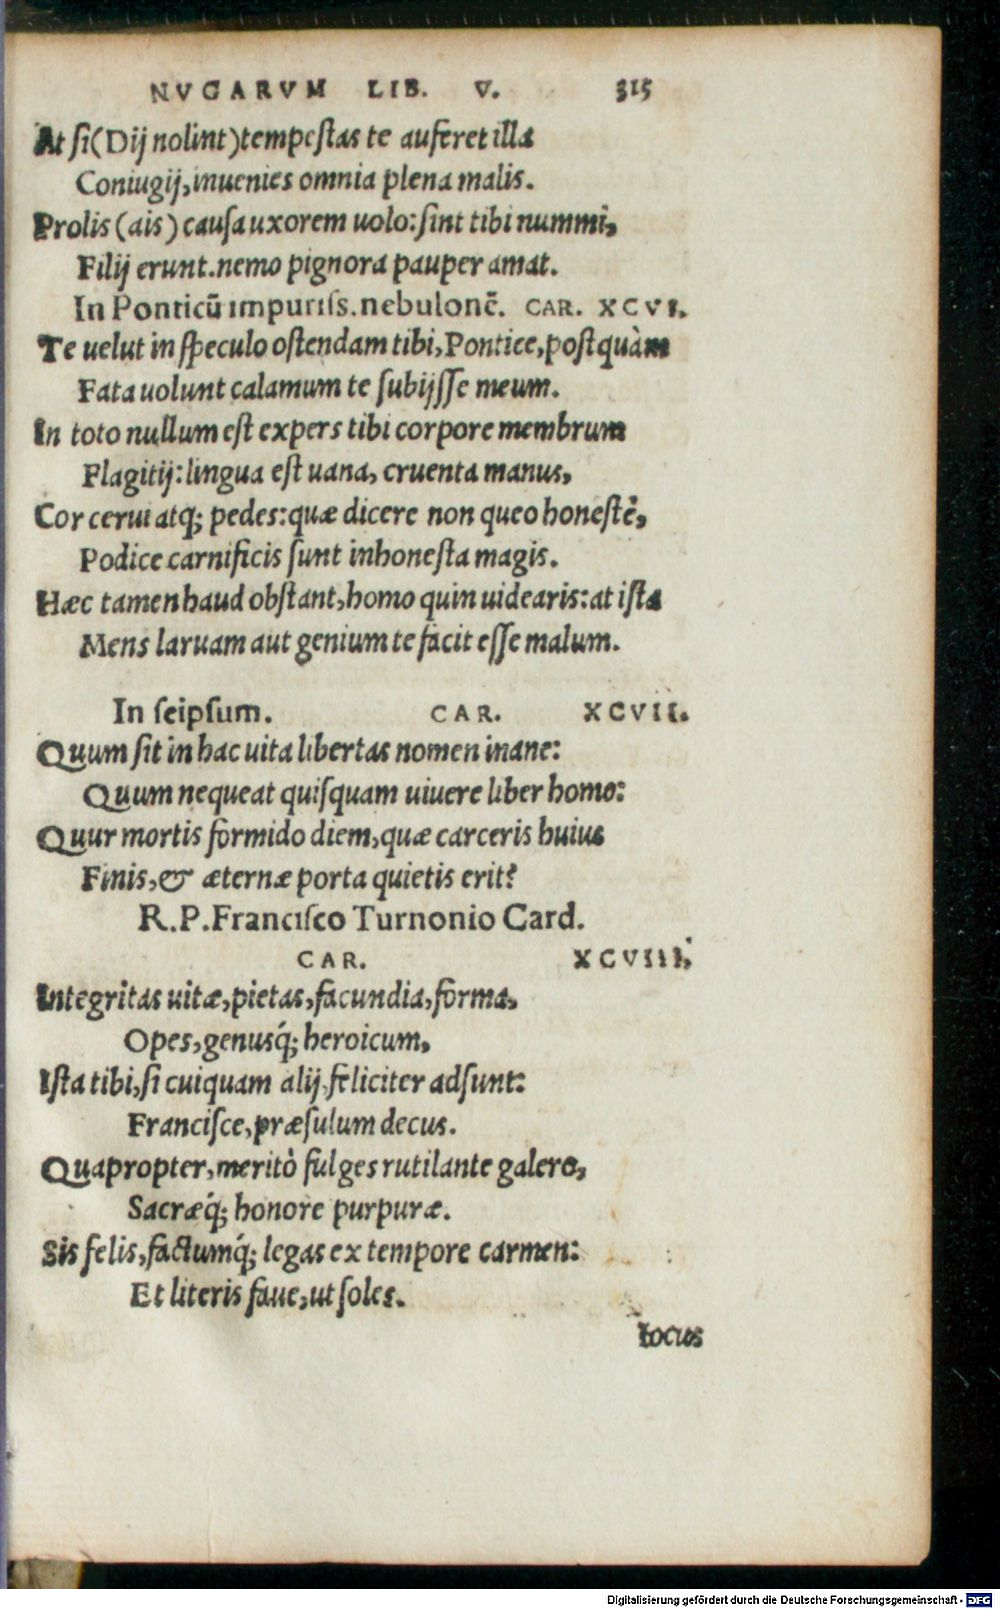 NVGARVM LIB. V. 315
At ſi (Dij nolint) tempeſtas te auferet illa
Coniugij, inuenies omnia plena malis.
Prolis (ais) cauſa uxorem uolo: ſint tibi nummi,
Filij erunt. nemo pignora pauper amat.
In Ponticū impuriſs. nebulonē. CAR. XCVI.
Te uelut in ſpeculo oſtendam tibi, Pontice, poſtquàm
Fata uolunt calamum te ſubijſſe meum.
In toto nullum eſt expers tibi corpore membrum
Flagitij: lingua eſt uana, cruenta manus,
Cor cerui atq; pedes: quæ dicere non queo honeſtè,
Podice carnificis ſunt inhoneſta magis.
Hæc tamen haud obſtant, homo quin uidearis: at iſta
Mens laruam aut genium te facit eſſe malum.
In ſeipſum. CAR. XCVII.
Quum ſit in hac uita libertas nomen inane:
Quum nequeat quiſquam uiuere liber homo:
Quur mortis formido diem, quæ carceris huius
Finis, & æternæ porta quietis erit?
R. P. Franciſco Turnonio Card.
CAR. XCVIII.
Integritas uitæ, pietas, facundia, forma,
Opes, genusq́; heroicum,
Iſta tibi, ſi cuiquam alij, feliciter adſunt:
Franciſce, præſulum decus.
Quapropter, meritò fulges rutilante galero,
Sacræq́; honore purpuræ.
Sis felis, factumq́; legas ex tempore carmen:
Et literis faue, ut ſoles.
locus
Digitalisierung gefördert durch die Deutsche Forschungsgemeinschaft - DFG